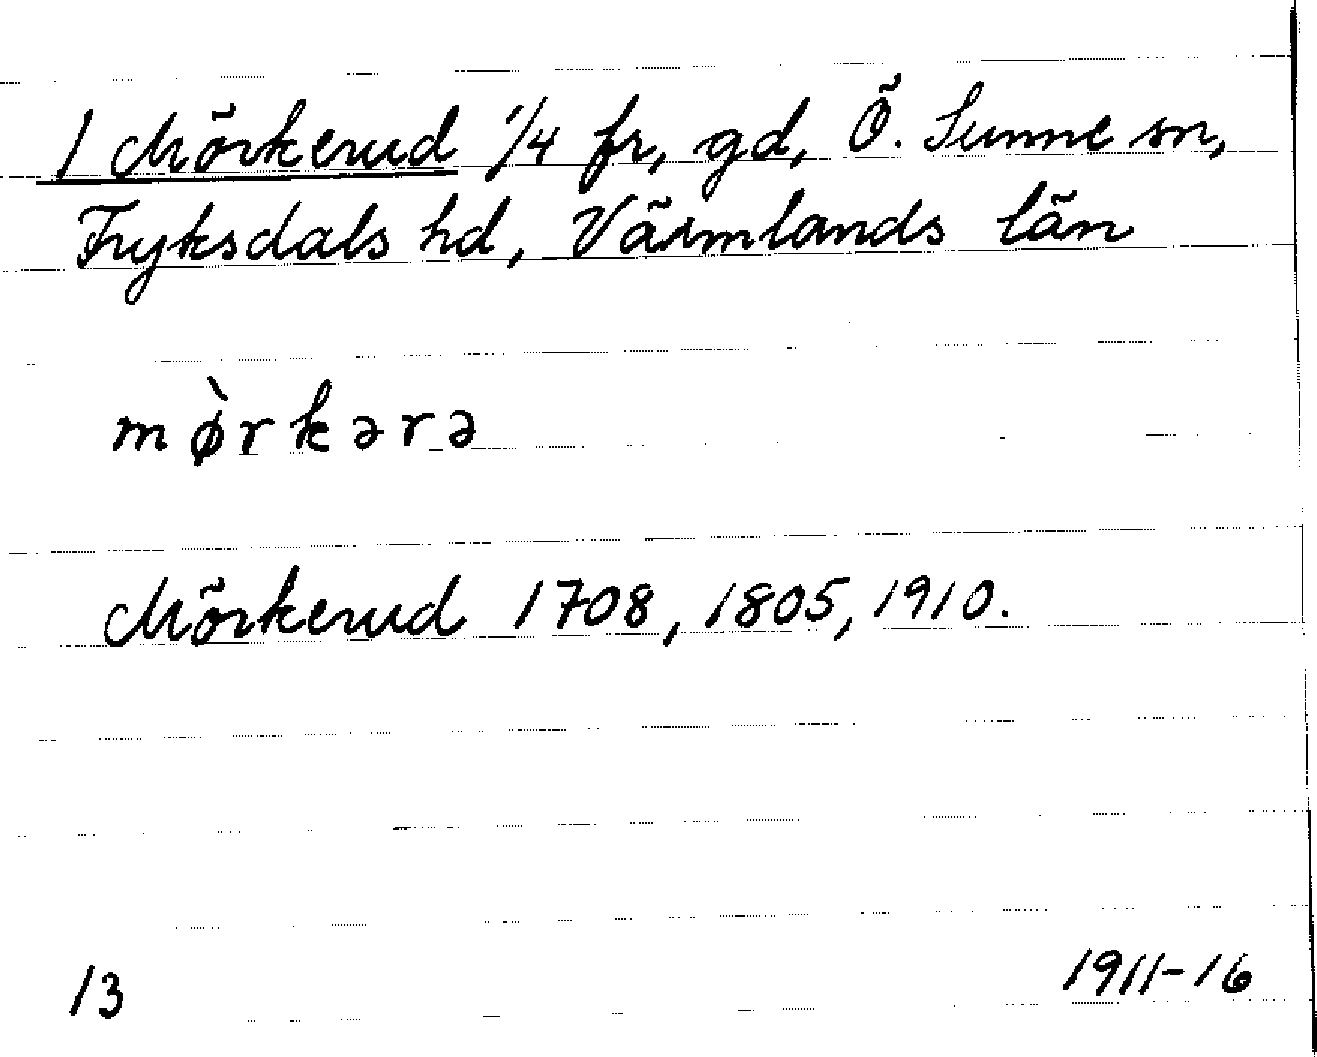 1 Mörkerud 1/4 fr, gd, Ö. Sunne sn,
Fryksdals hd, Värmlands län
mø̀rkərə
Mörkerud 1708, 1805, 1910.
13
1911-16